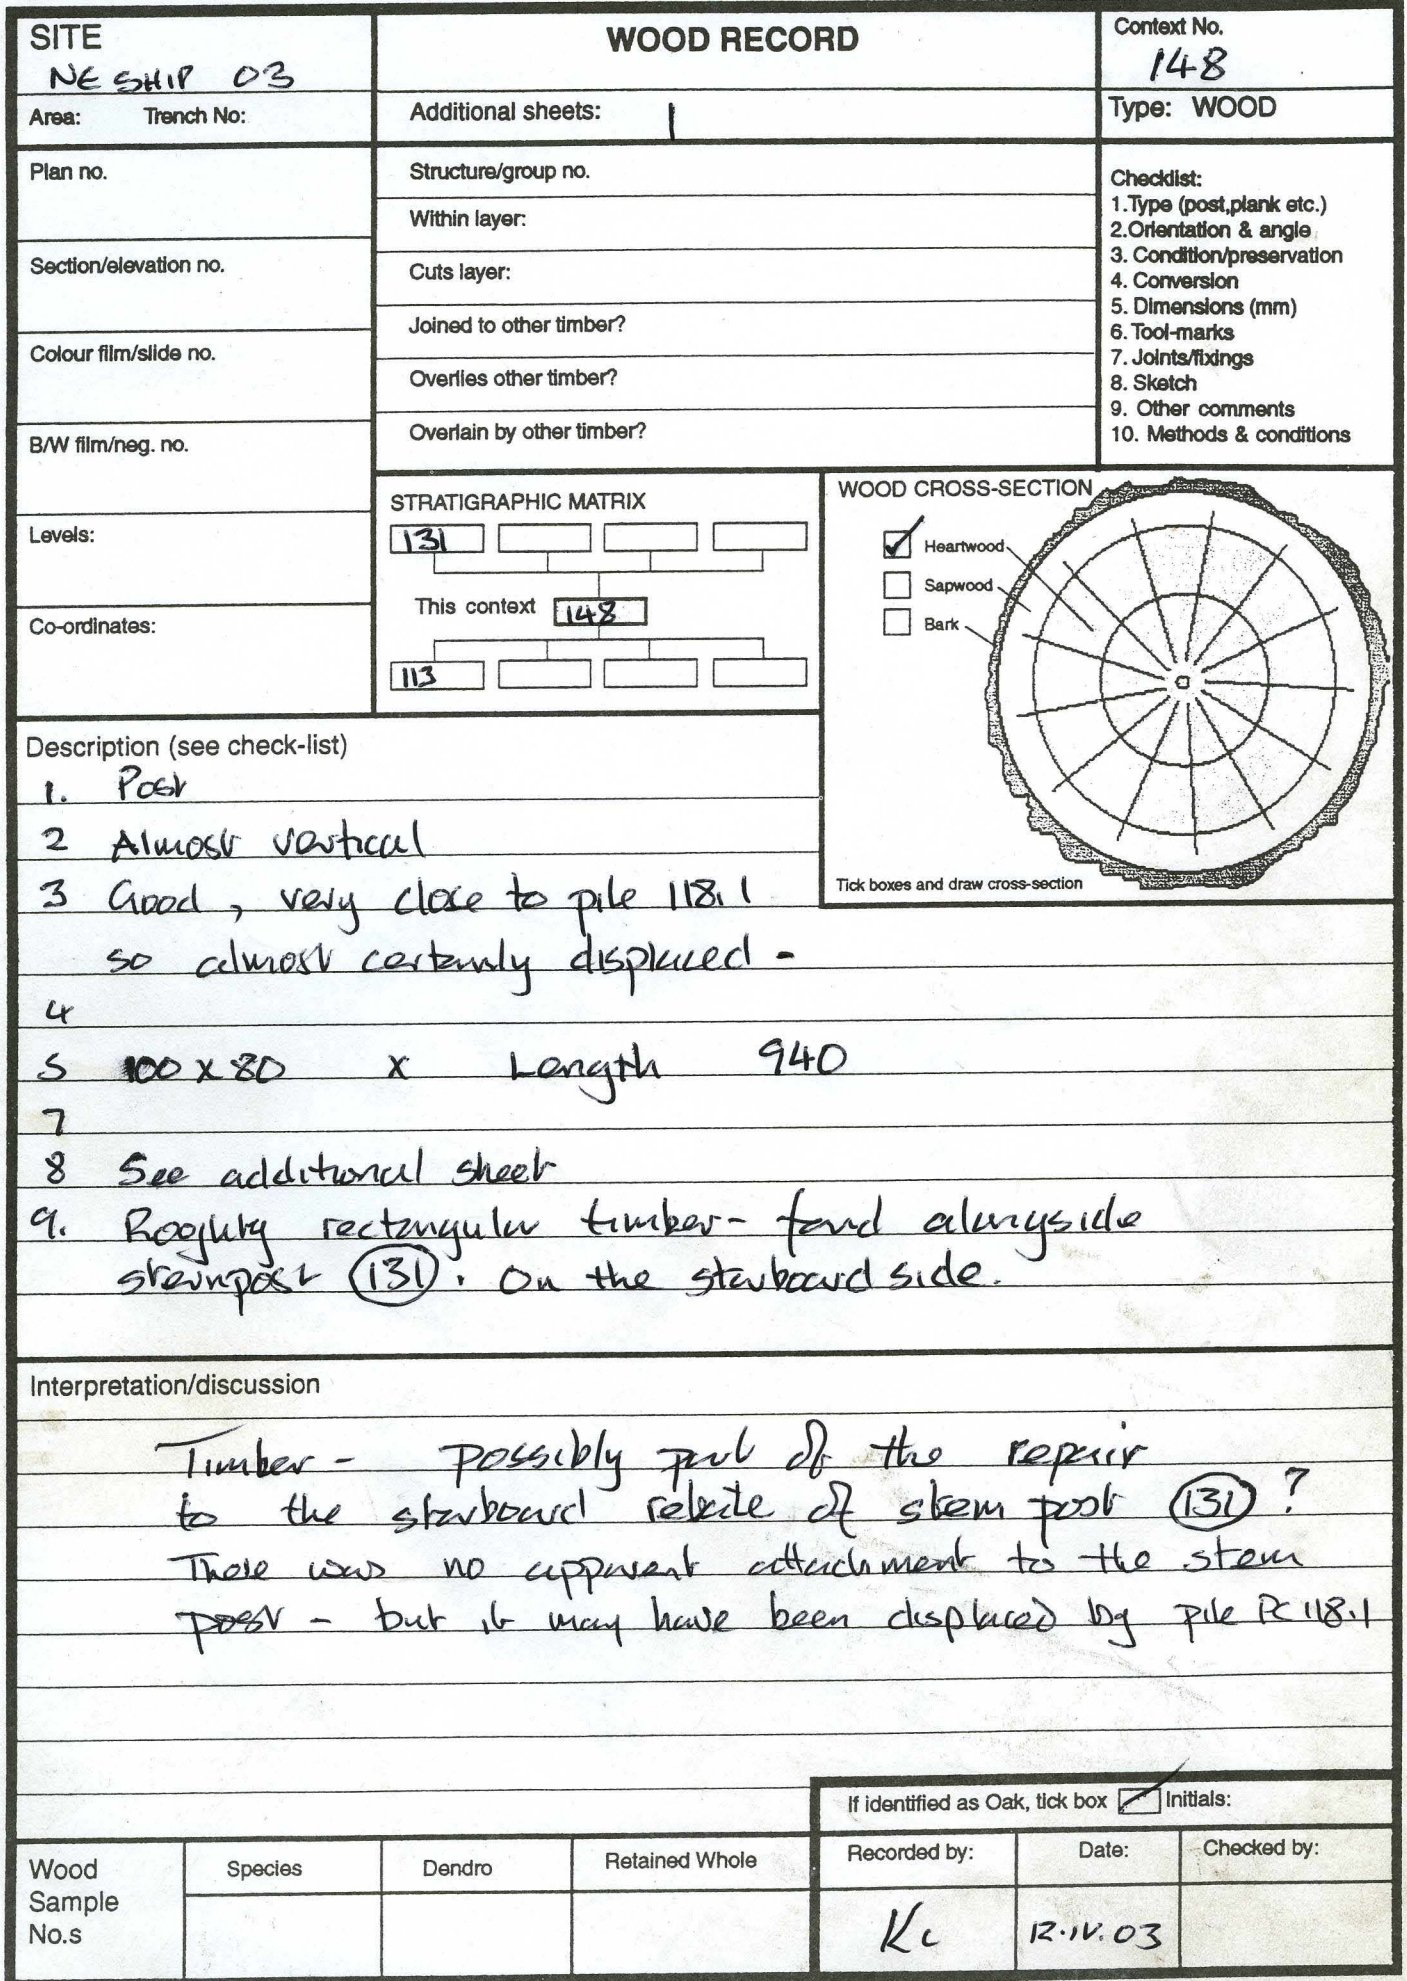 SITE
NE SHIP 03
WOOD RECORD
Context No.
148
Area: Trench No:
Additional sheets: 1
Type: WOOD
Plan no.
Section/elevation no.
Colour film/slide no.
B/W film/neg. no.
Levels:
Co-ordinates:
Structure/group no.
Within layer:
Cuts layer:
Joined to other timber?
Overlies other timber?
Overlain by other timber?
Checklist:
1.Type (post,plank etc.)
2.Orientation & angle
3. Condition/preservation
4. Conversion
5. Dimensions (mm)
6. Tool-marks
7. Joints/fixings
8. Sketch
9. Other comments
10. Methods & conditions
STRATIGRAPHIC MATRIX
131
This context 148
113
WOOD CROSS-SECTION
Heartwood
Sapwood
Bark
Tick boxes and draw cross-section
Description (see check-list)
1. Post
2 Almost vertical
3 Good, very close to pile 118.1
so almost certainly displaced -
4
5 100 x 80 x Length 940
7
8 See additional sheet
9. Roughly rectangular timber - found alongside
sternpost 131. On the starboard side.
Interpretation/discussion
Timber - possibly part of the repair
to the starboard rebate of stem post 131 ?
There was no apparent attachment to the stem
post - but it may have been displaced by pile PC 118.1
If identified as Oak, tick box Initials:
Wood
Sample
No.s
Species
Dendro
Retained Whole
Recorded by:
Date:
Checked by:
KC
12.IV.03